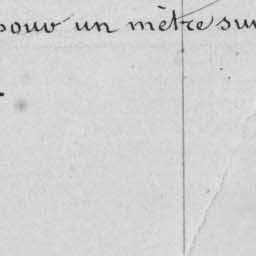 pour un mètre sur